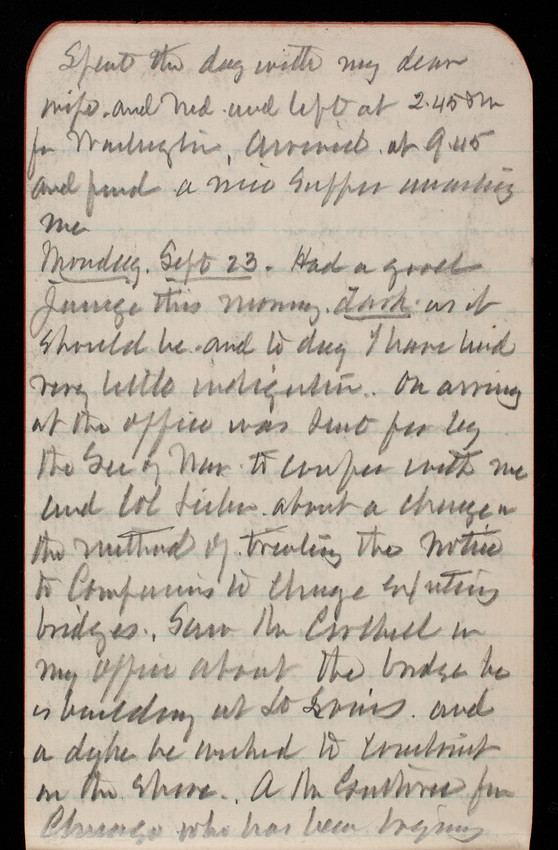 Spent the day with my dear
wife. and Ned. and left at 2.45 Pm
for Washington, Arrived. at 9.45
and found a nice Supper awaiting
me
Monday. Sept 23. Had a good
passage this morning. dark. as it
should be. and to day I have had
very little indigestion. On arriving
at the office was sent for by
the Sec of War to confer with me
and Col about a change in
the method of treating the Notice
to Companies to change existing
bridges. Saw Mr Corthell in
my office about the bridge he
is building at St Louis. and
a dyke he wished to construct
on the shore. A Mr from
Chicago who has been